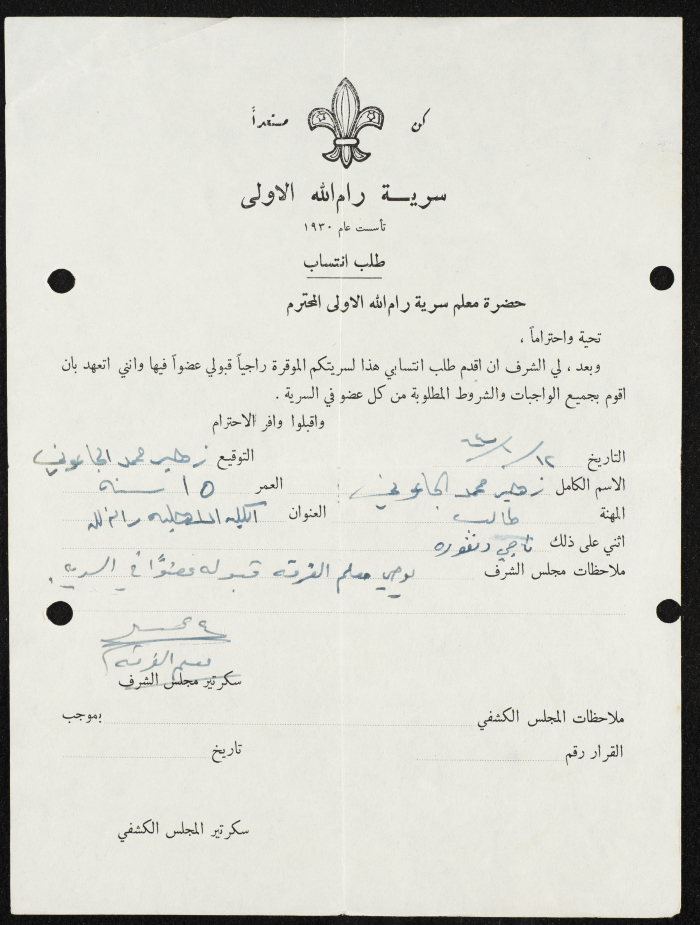 كن مستعداً
سريـــة رام الله الاولى
تأسست عام ١٩٣٠
طلب انتساب
حضرة معلم سرية رام الله الاولى المحترم
تحية واحتراماً ،
وبعد ، لي الشرف ان اقدم طلب انتسابي هذا لسريتكم الموقرة راجياً قبولي عضواً فيها وانني اتعهد بان
اقوم بجميع الواجبات والشروط المطلوبة من كل عضو في السرية .
واقبلوا وافر الاحترام
التاريخ ١٢/ التوقيع زهير محمد الجاعوني
الاسم الكامل زهير محمد الجاعوني العمر ١٥ سنه
المهنة طالب العنوان الكليه الاهليه رام الله
اثني على ذلك ناجي
ملاحظات مجلس الشرف يوصي معلم الفرقه قبوله عضوًا في السريه .
معلم الفرقه
سكرتير مجلس الشرف
ملاحظات المجلس الكشفي بموجب
القرار رقم تاريخ
سكرتير المجلس الكشفي